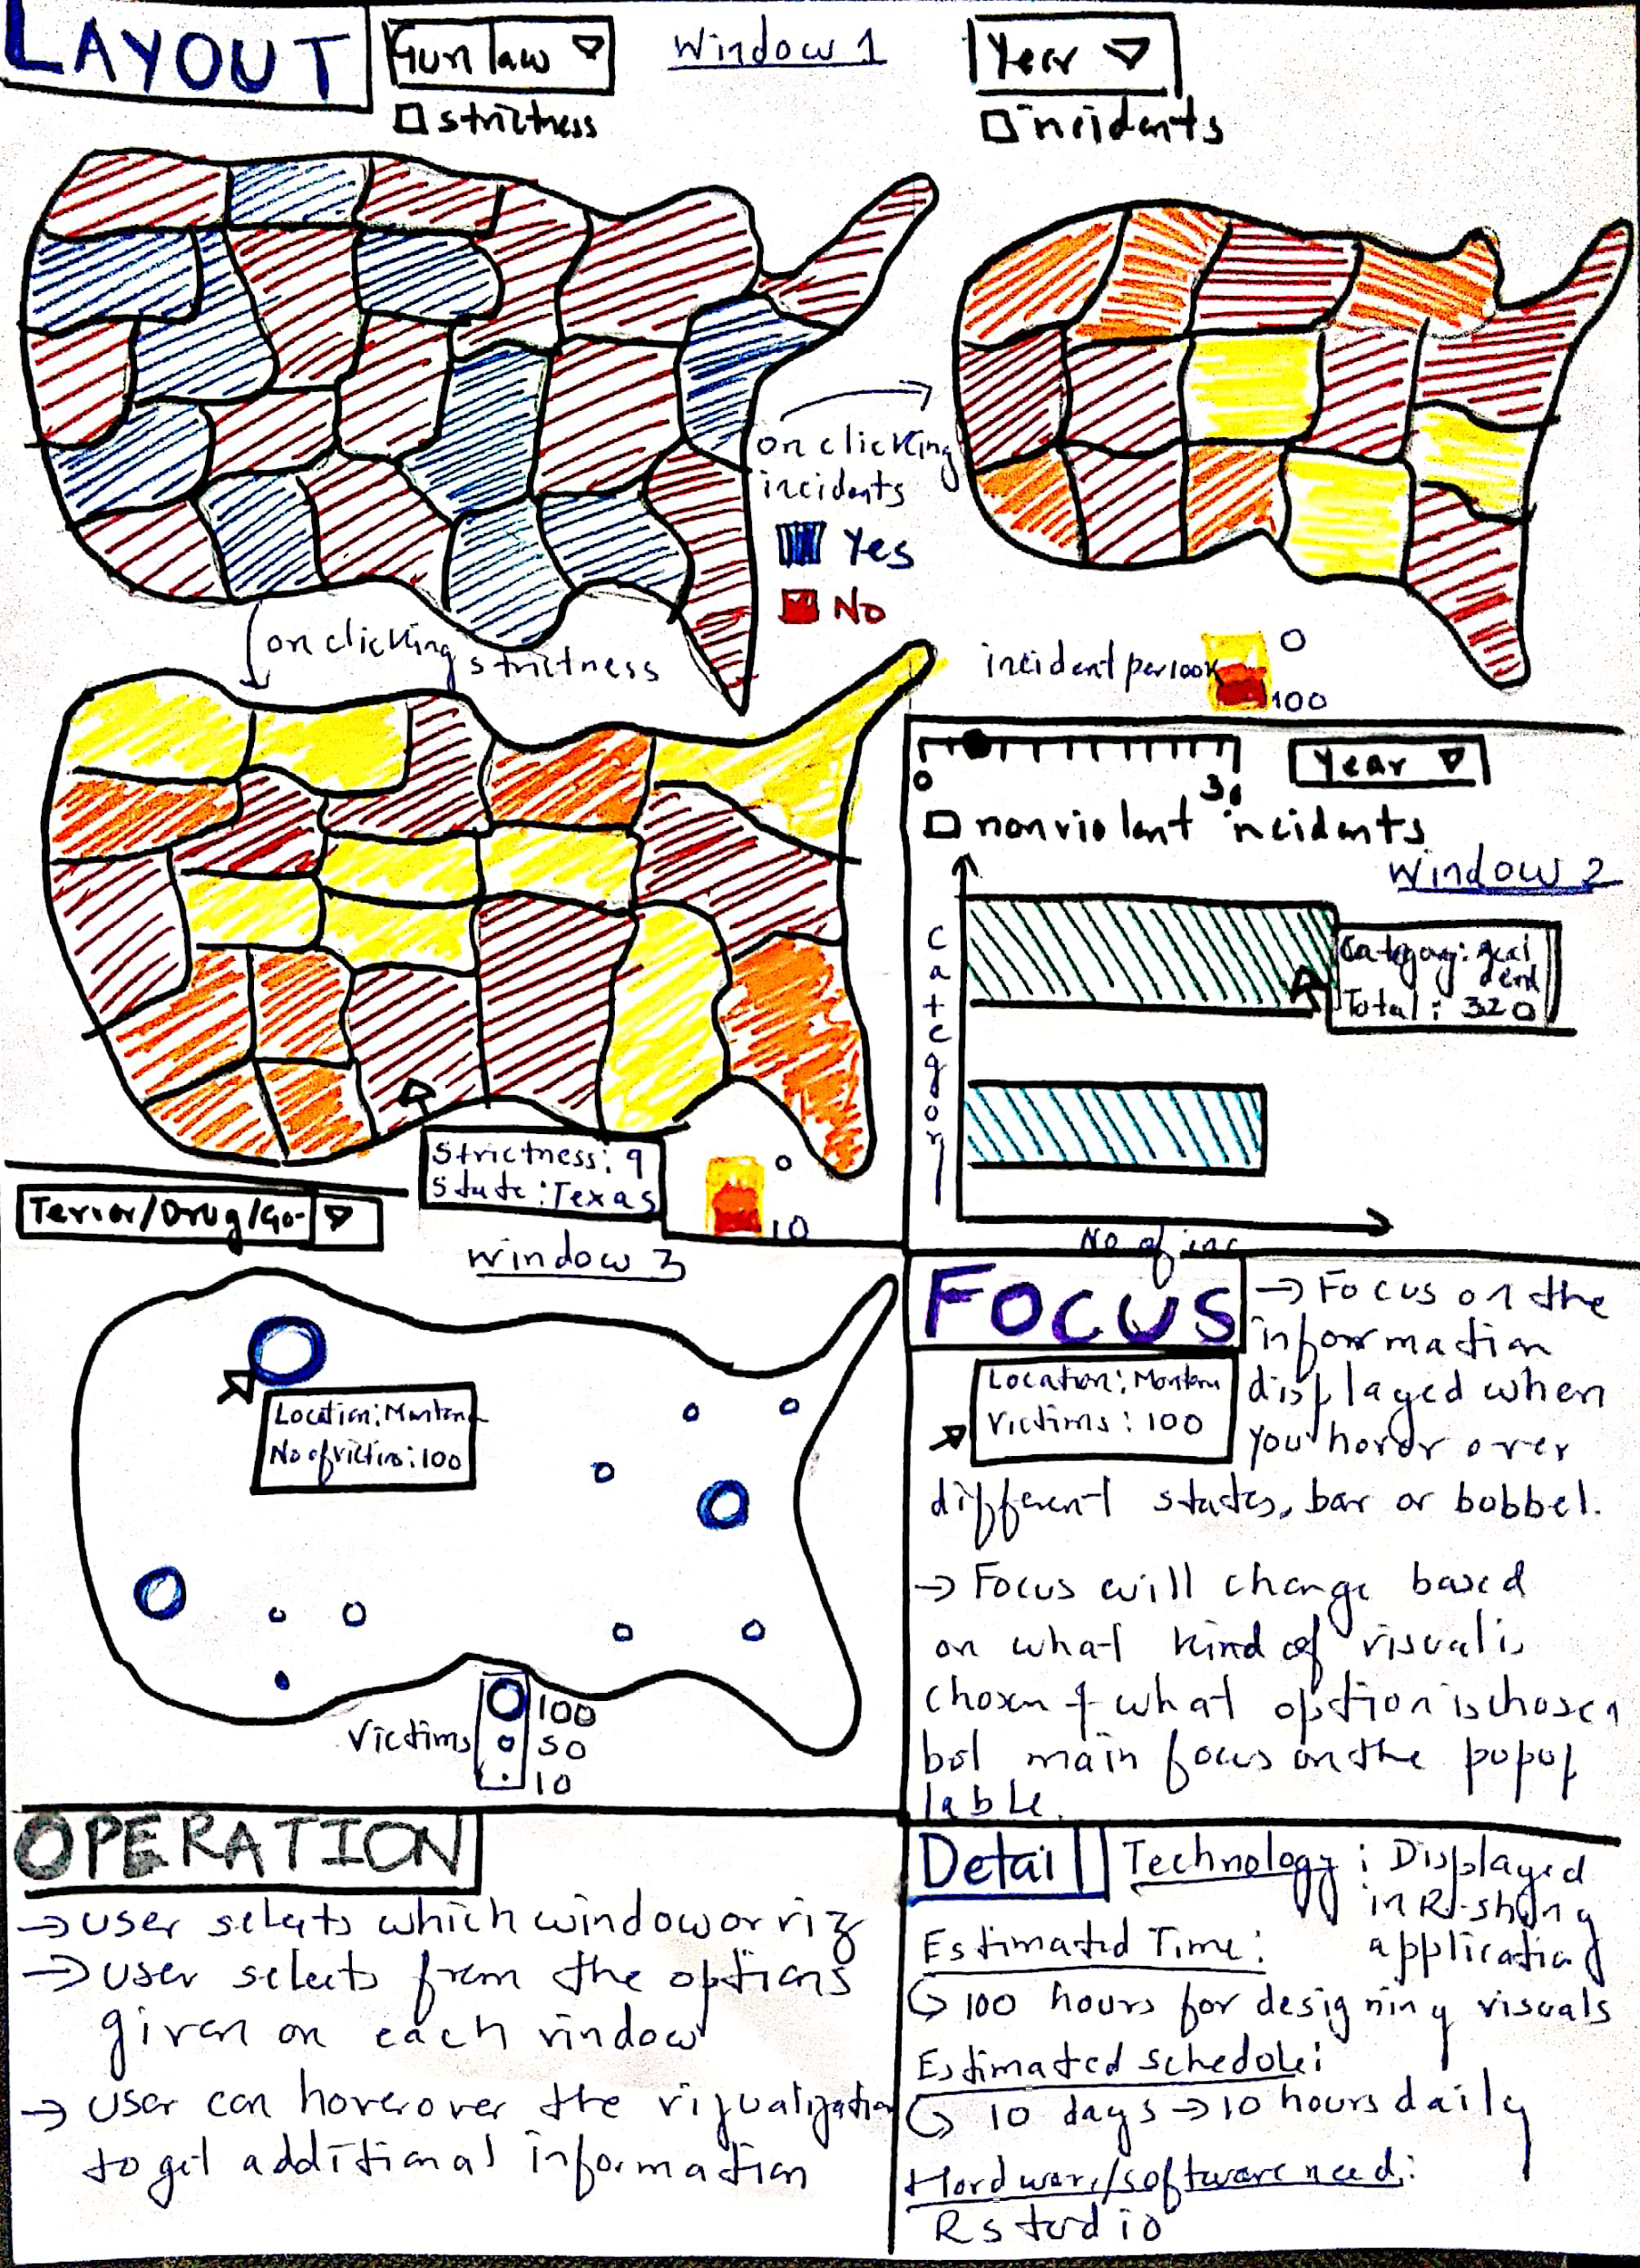 LAYOUT
Gun law
Window 1
Year
strictness
incidents
on clicking
incidents
Yes
No
on clicking
strictness
incident per 100K
0
100
0
30
Year
nonviolent incidents
Window 2
Category
Category:
Total: 320
No of inc
Strictness: 9
State: Texas
0
10
Terror/Drug/Go-
Window 3
Location: Montana
No of victim: 100
Victims
100
50
10
FOCUS
→ Focus on the
information
displayed when
you hover over
different states, bar or bobbel.
Location: Montana
Victims: 100
→ Focus will change based
on what kind of visual is
chosen & what option is chosen
but main focus on the popup
lable.
OPERATION
→ user selects which window or viz
→ user selects from the options
given on each window
→ user can hover over the vizualization
to get additional information
Detail
Technology: Displayed
in R-shiny
application
Estimated Time:
100 hours for designing visuals
Estimated schedule:
10 days → 10 hours daily
Hardware/software need:
R studio